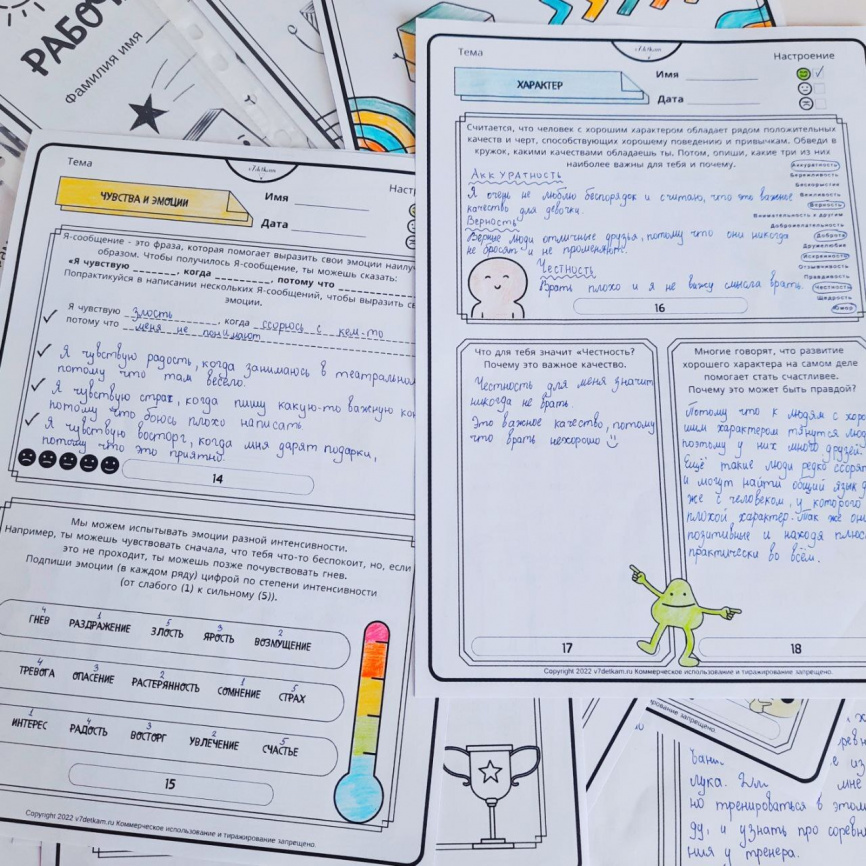 РАБОЧ
Фамилия имя
Тема
v7detkam
ЧУВСТВА И ЭМОЦИИ
Имя
Дата
Я-сообщение - это фраза, которая помогает выразить свои эмоции
образом. Чтобы получилось Я-сообщение, ты можешь сказать:
«Я чувствую _______, когда __________, потому что
Попрактикуйся в написании нескольких Я-сообщений, чтобы выразить
эмоции.
Я чувствую злость, когда ссорюсь с кем-то
потому что меня не понимают
Я чувствую радость, когда занимаюсь в
потому что там весело.
Я чувствую страх, когда пишу какую-то важную
потому что боюсь плохо написать
Я чувствую восторг, когда мня дарят подарки,
потому что это приятно.
14
Мы можем испытывать эмоции разной интенсивности.
Например, ты можешь чувствовать сначала, что тебя что-то беспокоит, но, если
это не проходит, ты можешь позже почувствовать гнев.
Подпиши эмоции (в каждом ряду) цифрой по степени интенсивности
(от слабого (1) к сильному (5)).
4 1 5 3 2
ГНЕВ РАЗДРАЖЕНИЕ ЗЛОСТЬ ЯРОСТЬ ВОЗМУЩЕНИЕ
4 3 2 1 5
ТРЕВОГА ОПАСЕНИЕ РАСТЕРЯННОСТЬ СОМНЕНИЕ СТРАХ
1 4 3 2 5
ИНТЕРЕС РАДОСТЬ ВОСТОРГ УВЛЕЧЕНИЕ СЧАСТЬЕ
15
Copyright 2022 v7detkam.ru Коммерческое использование и тиражирование запрещено.
Тема
v7detkam
Настроение
ХАРАКТЕР
Имя
Дата
Считается, что человек с хорошим характером обладает рядом положительных
качеств и черт, способствующих хорошему поведению и привычкам. Обведи в
кружок, какими качествами обладаешь ты. Потом, опиши, какие три из них
наиболее важны для тебя и почему.
Аккуратность
Бережливость
Бескорыстие
Вежливость
Верность
Внимательность к другим
Доброжелательность
Доброта
Дружелюбие
Искренность
Отзывчивость
Правдивость
Честность
Щедрость
Юмор
Аккуратность
Я очень не люблю беспорядок и считаю, что это важное
качество для девочки.
Верность
Верные люди отличные друзья, потому что они никогда
не бросят и не променяют.
Честность
Врать плохо и я не вижу смысла врать.
16
Что для тебя значит «Честность?
Почему это важное качество.
Честность для меня значит
никогда не врать.
Это важное качество, потому
что врать нехорошо
17
Многие говорят, что развитие
хорошего характера на самом деле
помогает стать счастливее.
Почему это может быть правдой?
Потому что к людям с хоро-
шим характером тянутся
поэтому у них много друзей.
Ещё такие люди редко
и могут найти общий язык
же с человеком, у которого
плохой характер. Так же они
позитивные и находя
практически во всём.
18
Copyright 2022 v7detkam.ru Коммерческое использование и тиражирование запрещено.
запрещено.
лука.
мне
но тренироваться в этом
ду, и узнать про
ния у тренера.